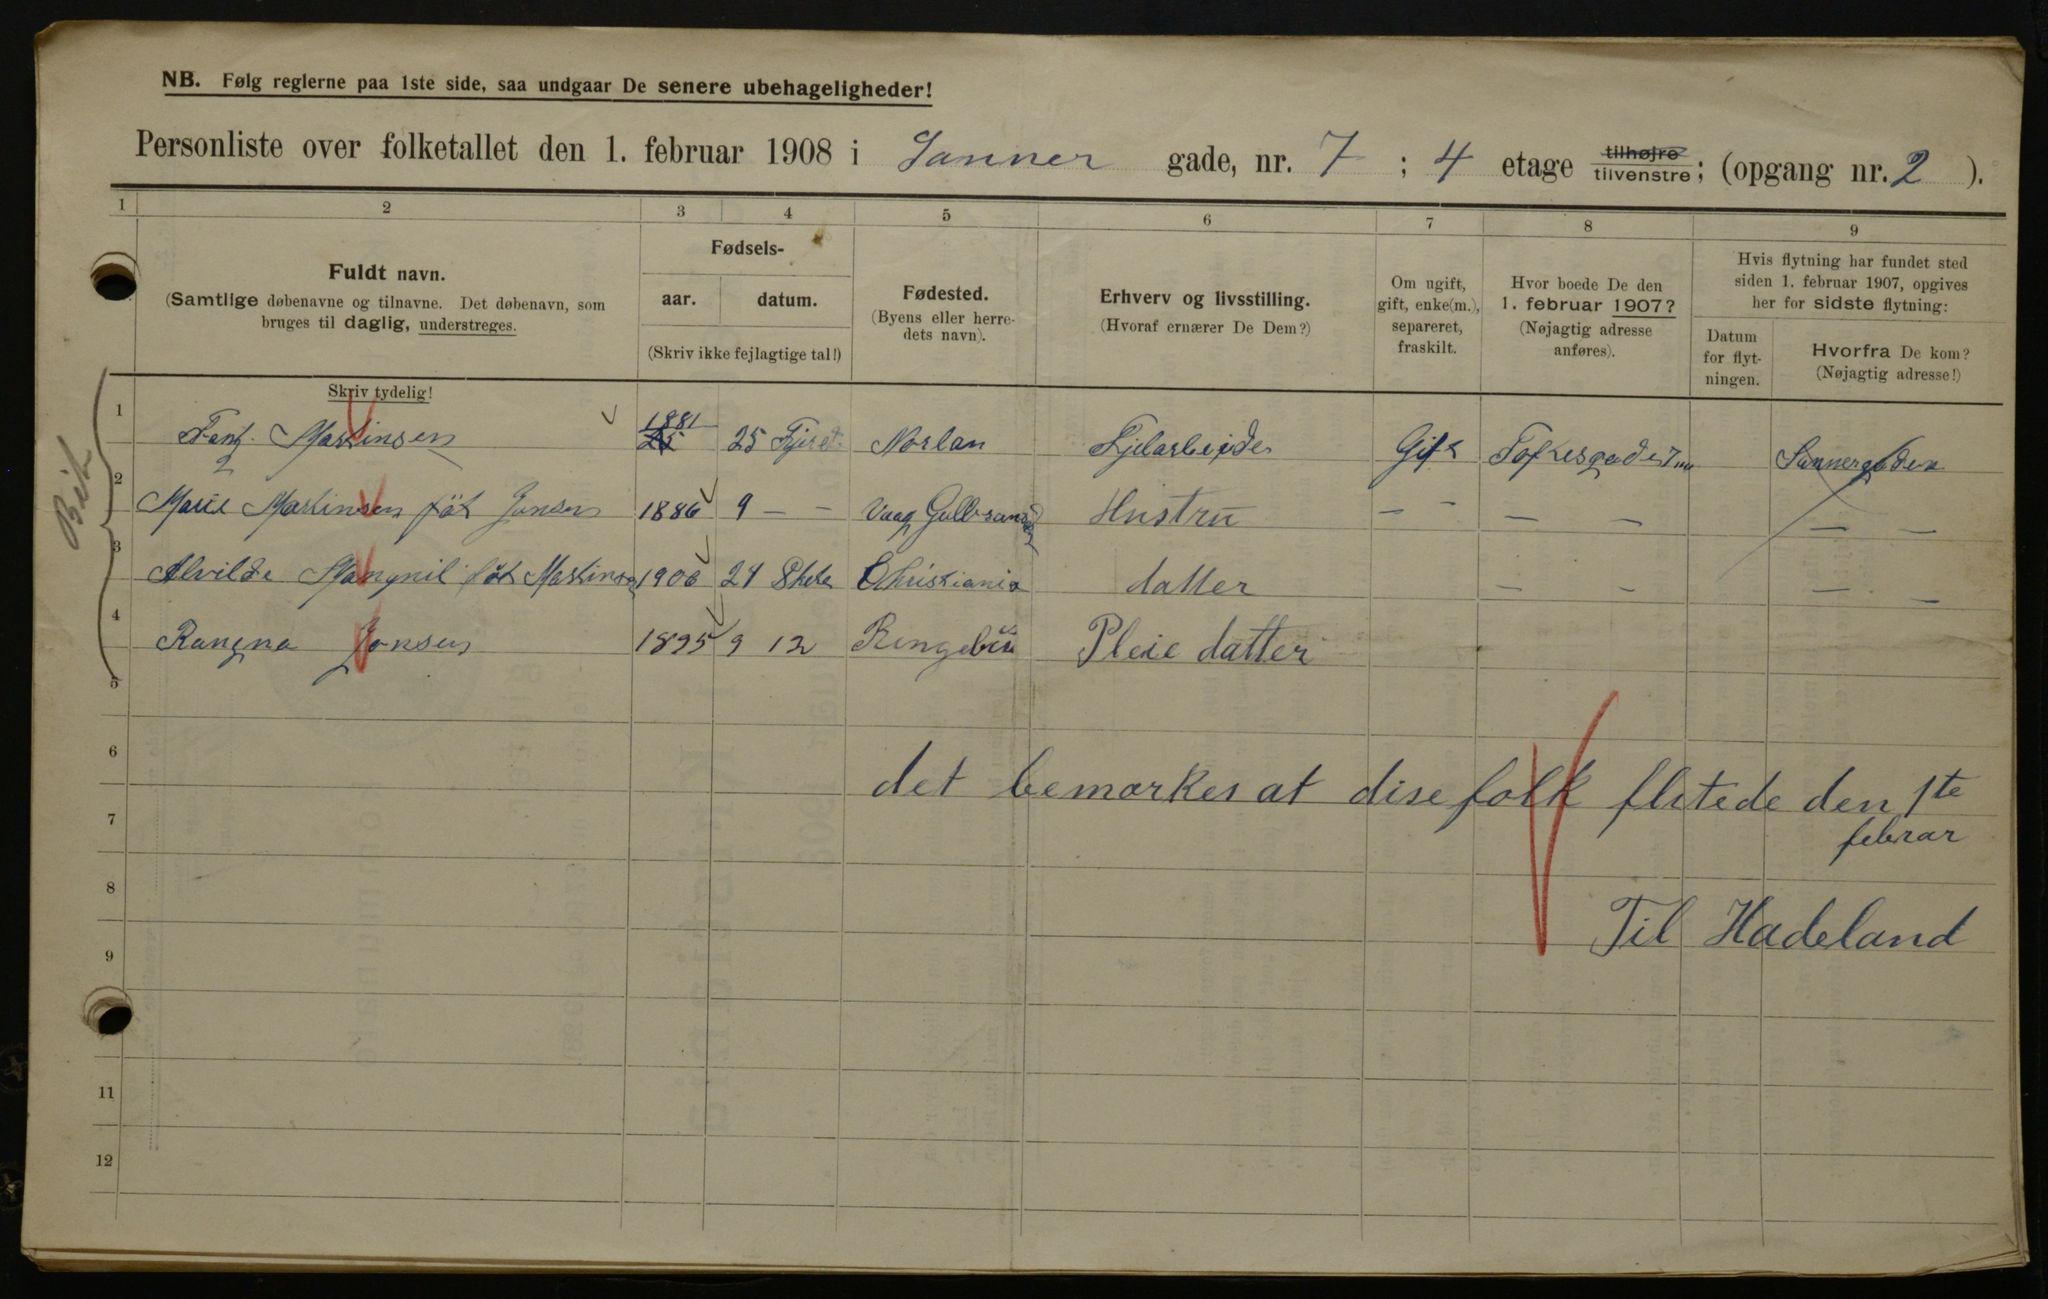 NB. Følg reglerne paa 1ste side, saa undgaar De senere ubehageligheder!
Personliste over folketallet den 1. februar 1908 i Sanner gade, nr. 7 ; 4 etage tilhøjre tilvenstre; (opgang nr. 2 ).
1 2 3 4 5 6 7 8 9
Fuldt navn.
(Samtlige døbenavne og tilnavne. Det døbenavn, som
bruges til daglig, understreges.
Skriv tydelig!
Fødsels-
aar. datum.
(Skriv ikke fejlagtige tal!)
Fødested.
(Byens eller herre-
dets navn).
Erhverv og livsstilling.
(Hvoraf ernærer De Dem?)
Om ugift,
gift, enke(m.),
separeret,
fraskilt.
Hvor boede De den
1. februar 1907?
(Nøjagtig adresse
anføres).
Hvis flytning har fundet sted
siden 1. februar 1907, opgives
her for sidste flytning:
Datum
for flyt-
ningen.
Hvorfra De kom?
(Nøjagtig adresse!)
1 Martinsen 1881 25 Norlan Gift Sannergaden
2 Marie Martinsen föt Jonsen 1886 9 – – Vaag Hustru – – – – – –
3 Alvilde Mangnil föt Martinsen 1906 24 Christiania datter – – – –
4 Rangna Jonsen 1895 9 12 Ringebu Pleie datter
5
6
det bemærkes at dise folk flitede den 1te
7
febrar
8
Til Hadeland
9
11
12